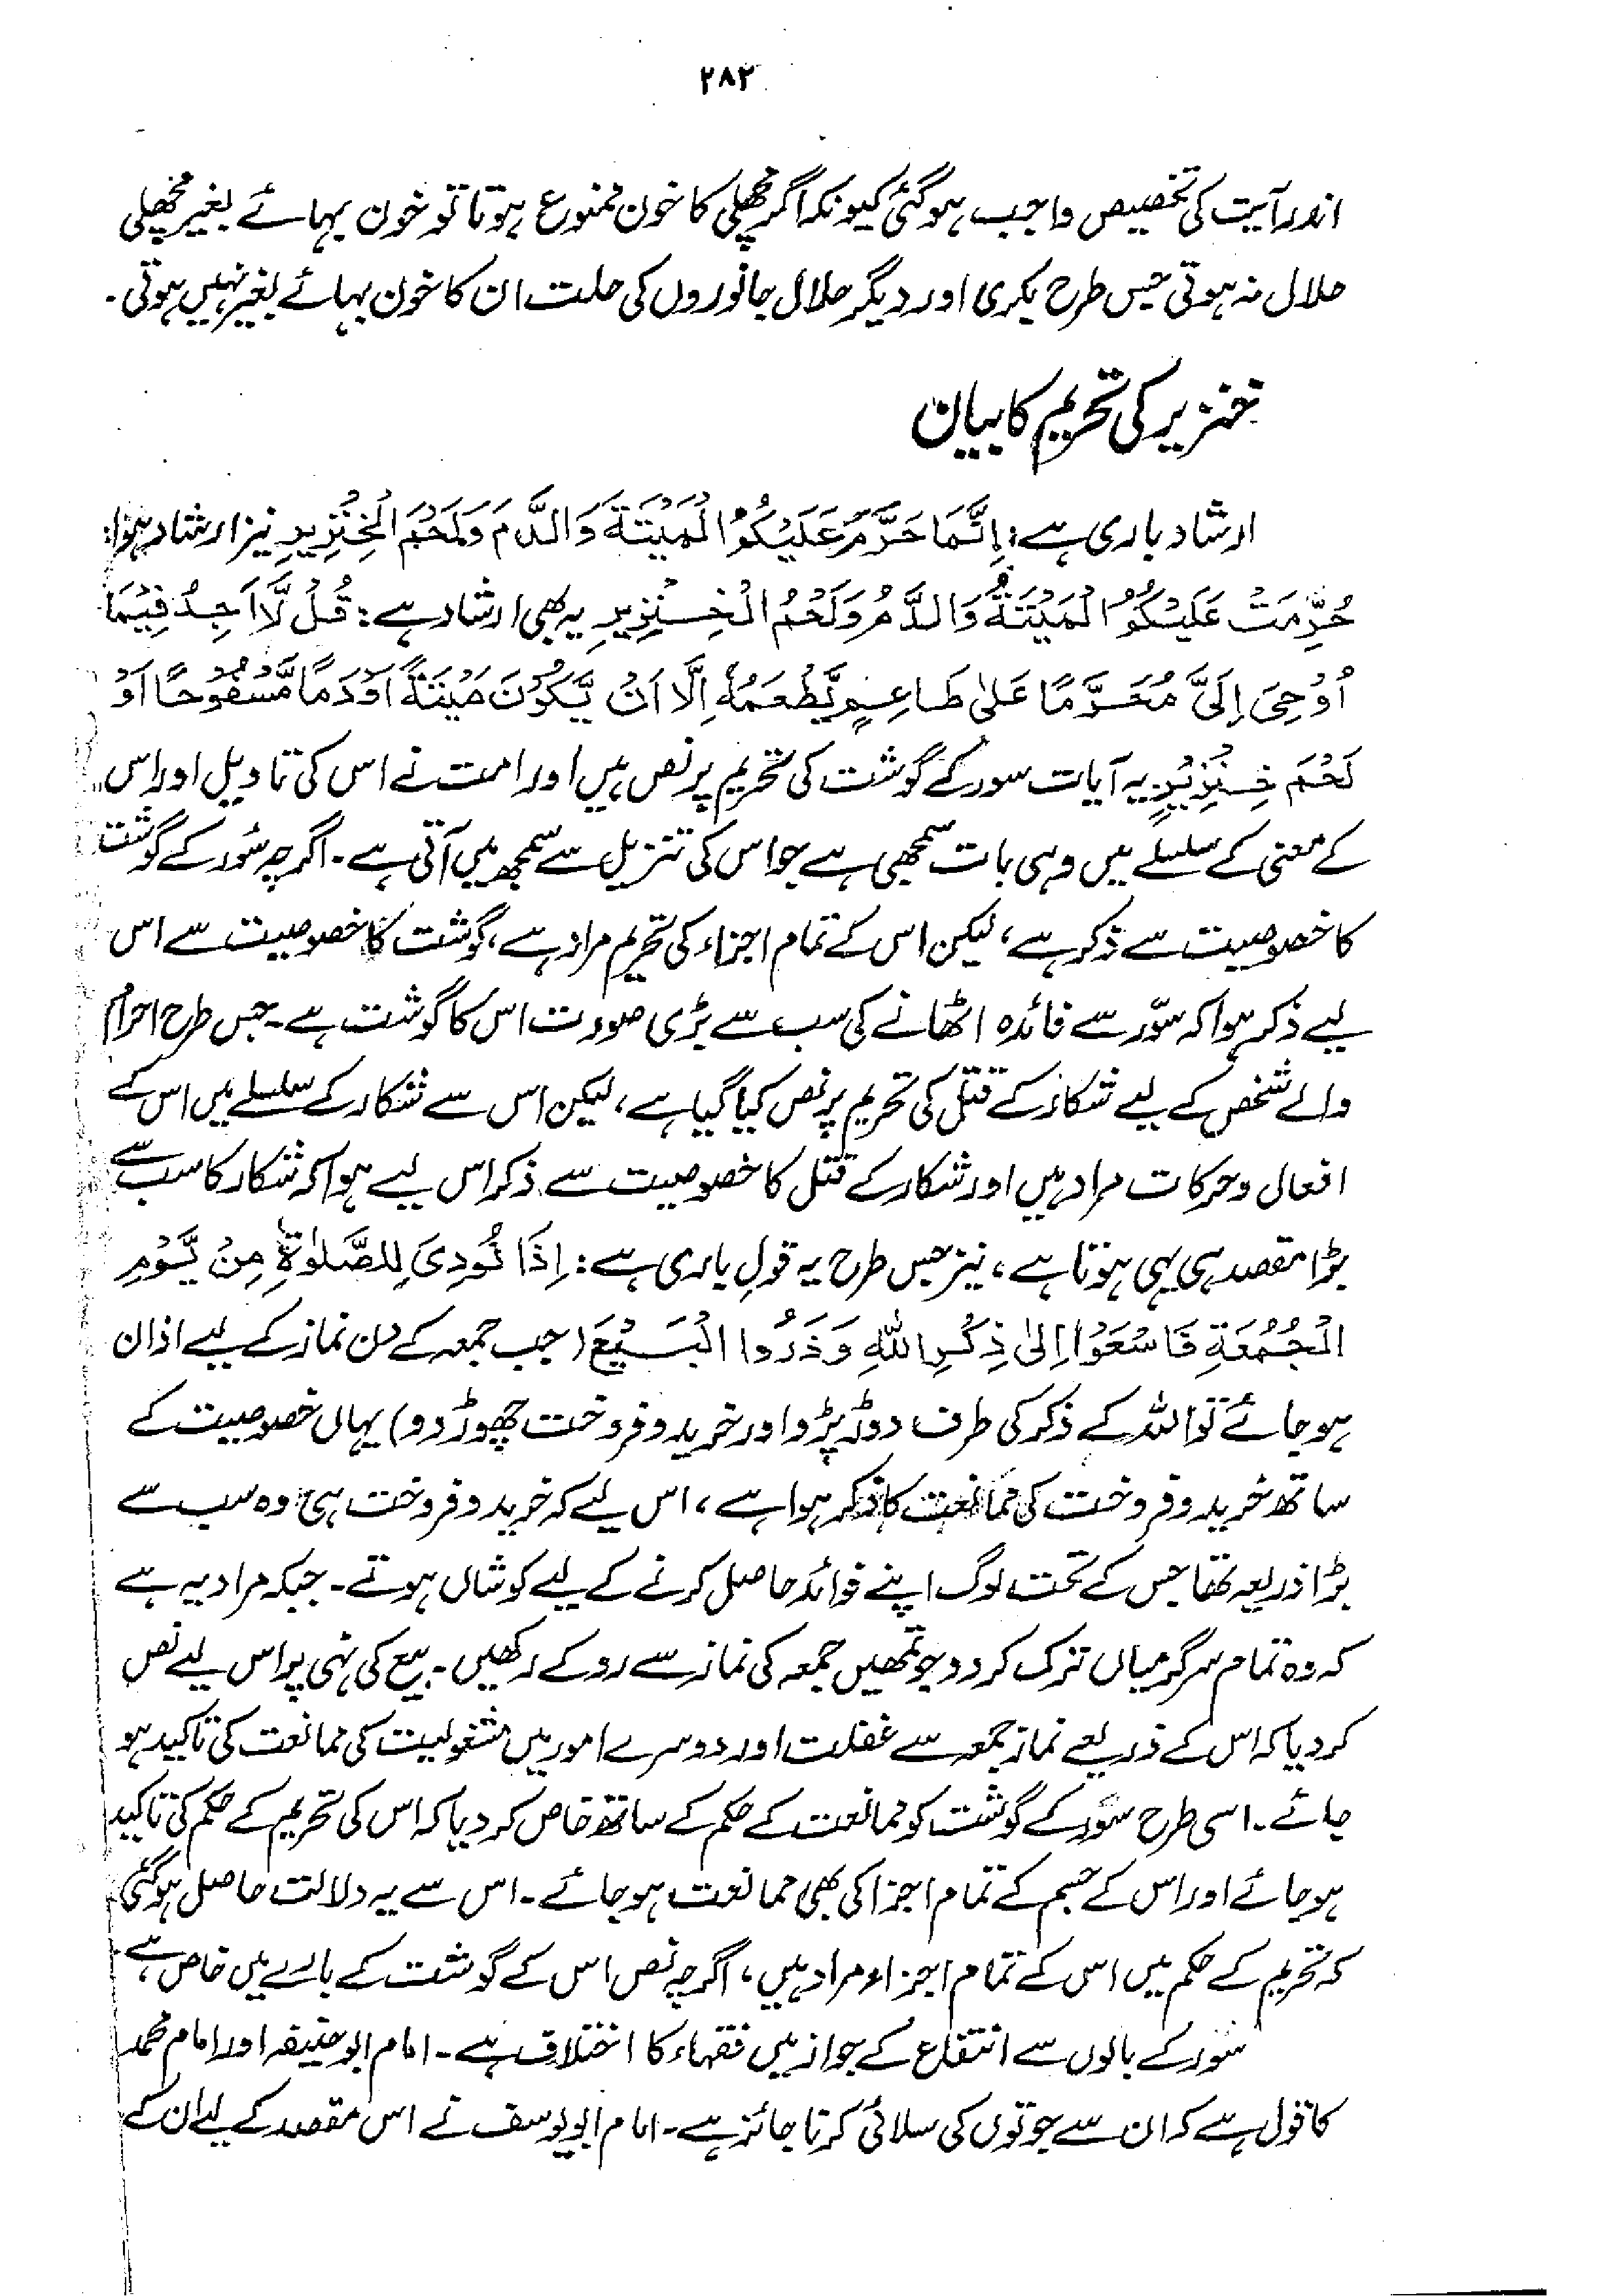 ۲۸۲
اندر آیت کی تخصیص واجب ہوگئی کیونکہ اگر مچھلی کا خون ممنوع ہوتا تو خون بہائے بغیر مچھلی
حلال نہ ہوتی جس طرح بکری اور دیگر حلال جانوروں کی حلت ان کا خون بہائے بغیر نہیں ہوتی۔
خنزیر کی تحریم کا بیان
ارشاد باری ہے: اِنَّمَا حَرَّمَ عَلَيْكُمُ الْمَيْتَةَ وَالدَّمَ وَلَحْمَ الْخِنْزِيرِ نیز ارشاد ہوا:
حُرِّمَتْ عَلَيْكُمُ الْمَيْتَةُ وَالدَّمُ وَلَحْمُ الْخِنْزِيرِ یہ بھی ارشاد ہے: قُلْ لَّا اَجِدُ فِيْمَا
اُوْحِیَ اِلَیَّ مُحَرَّمًا عَلٰی طَاعِمٍ يَّطْعَمُهٗ اِلَّا اَنْ يَّكُوْنَ مَيْتَةً اَوْ دَمًا مَّسْفُوْحًا اَوْ
لَحْمَ خِنْزِيْرٍ یہ آیات سور کے گوشت کی تحریم پر نص ہیں اور امت نے اس کی تاویل اور اس
کے معنی کے سلسلے میں وہی بات سمجھی ہے جو اس کی تنزیل سے سمجھ میں آتی ہے۔ اگرچہ سُور کے گوشت
کا خصوصیت سے ذکر ہے، لیکن اس کے تمام اجزاء کی تحریم مراد ہے، گوشت کا خصوصیت سے اس
لیے ذکر ہوا کہ سوّر سے فائدہ اٹھانے کی سب سے بڑی صورت اس کا گوشت ہے۔ جس طرح احرام
والے شخص کے لیے شکار کے قتل کی تحریم پر نص کیا گیا ہے، لیکن اس سے شکار کے سلسلے میں اس کے
افعال و حرکات مراد ہیں اور شکار کے قتل کا خصوصیت سے ذکر اس لیے ہوا کہ شکار کا سب سے
بڑا مقصد ہی یہی ہوتا ہے، نیز جس طرح یہ قولِ باری ہے: اِذَا نُوْدِیَ لِلصَّلوٰةِ مِنْ يَّوْمِ
الْجُمُعَةِ فَاسْعَوْا اِلٰی ذِكْرِ اللّٰهِ وَذَرُوا الْبَيْعَ (جب جمعہ کے دن نماز کے لیے اذان
ہو جائے تو اللہ کے ذکر کی طرف دوڑ پڑو اور خرید و فروخت چھوڑ دو) یہاں خصوصیت کے
ساتھ خرید و فروخت کی ممانعت کا ذکر ہوا ہے، اس لیے کہ خرید و فروخت ہی وہ سب سے
بڑا ذریعہ تھا جس کے تحت لوگ اپنے فوائد حاصل کرنے کے لیے کوشاں ہوتے۔ جبکہ مراد یہ ہے
کہ وہ تمام سرگرمیاں ترک کر دو جو تمھیں جمعہ کی نماز سے روکے رکھیں۔ بیع کی نہی پر اس لیے نص
کر دیا کہ اس کے ذریعے نماز جمعہ سے غفلت اور دوسرے امور میں مشغولیت کی ممانعت کی تاکید ہو
جائے۔ اسی طرح سوّر کے گوشت کو ممانعت کے حکم کے ساتھ خاص کر دیا کہ اس کی تحریم کے حکم کی تاکید
ہو جائے اور اس کے جسم کے تمام اجزا کی بھی ممانعت ہو جائے۔ اس سے یہ دلالت حاصل ہوگئی
کہ تحریم کے حکم میں اس کے تمام اجزاء مراد ہیں، اگرچہ نص اس کے گوشت کے بارے میں خاص ہے،
سُور کے بالوں سے انتفاع کے جواز میں فقہاء کا اختلاف ہے۔ امام ابو حنیفہ اور امام محمد
کا قول ہے کہ ان سے جوتوں کی سلائی کرنا جائز ہے۔ امام ابو یوسف نے اس مقصد کے لیے ان کے